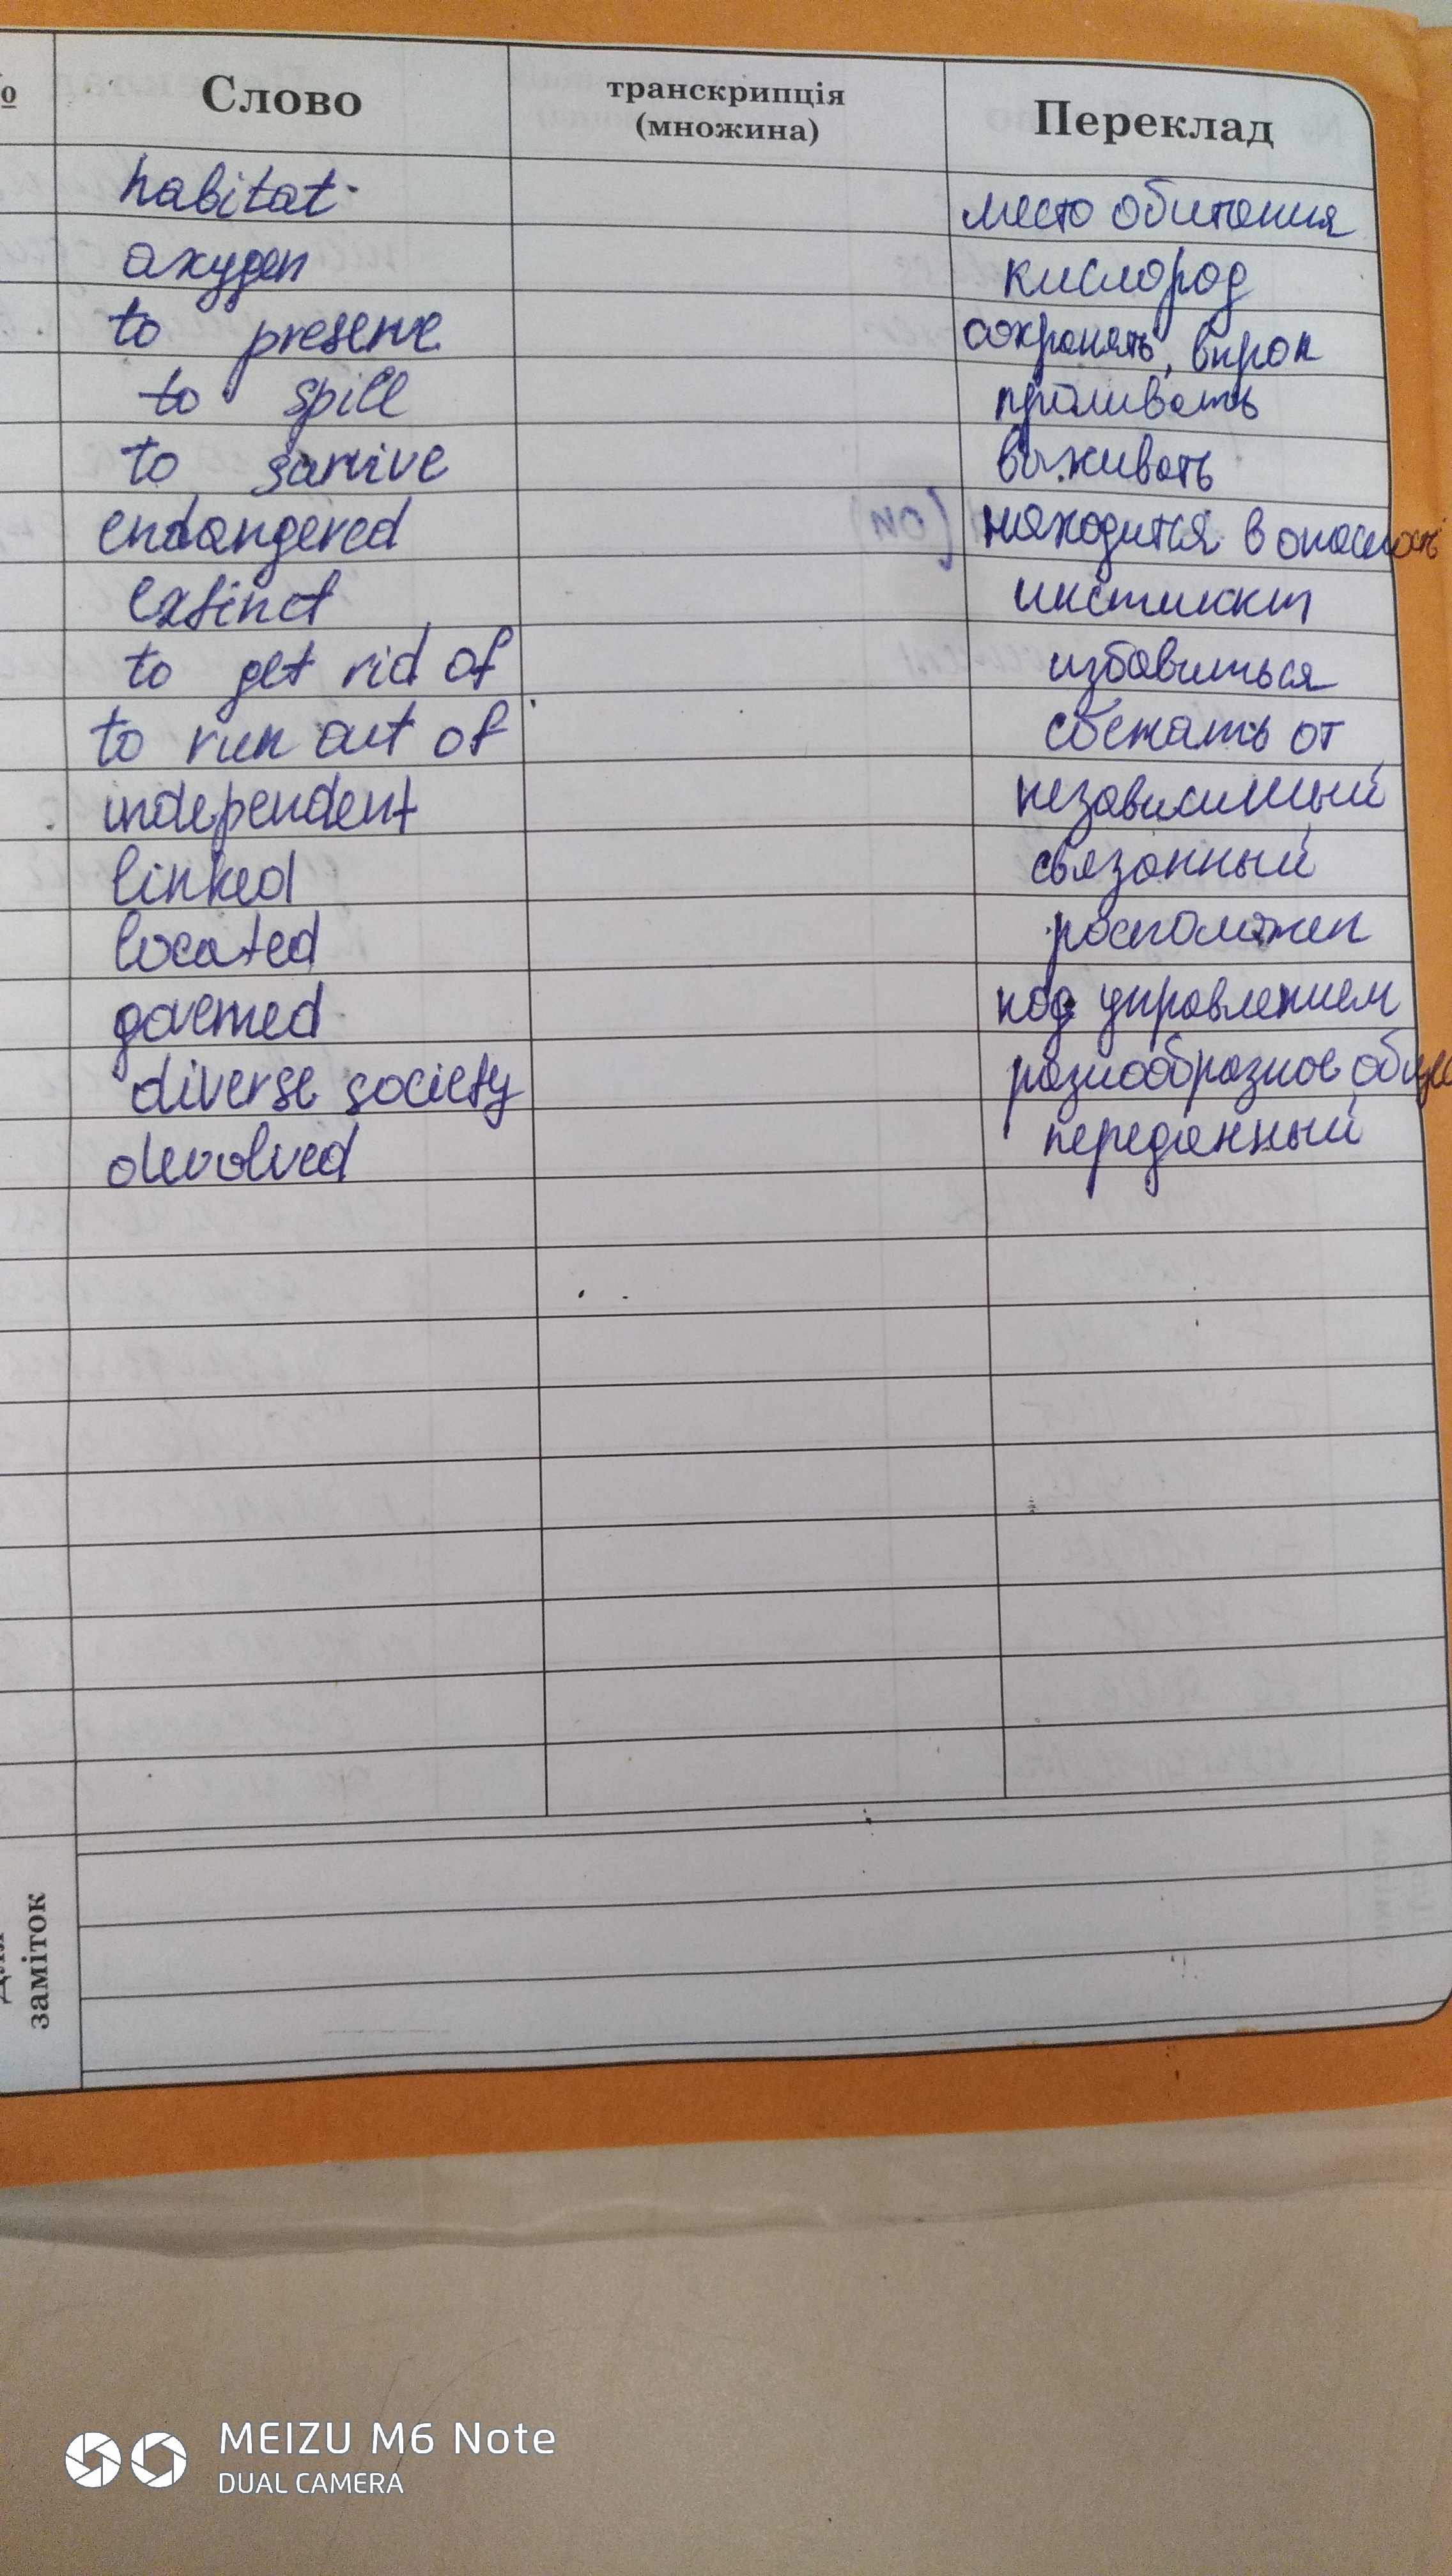 № Слово транскрипція (множина) Переклад
habitat место обитания
oxygen кислород
to preserve сохранять, впрок
to spill проливать
to survive выживать
endangered находится в опасность
extinct инстинкт
to get rid of избавиться
to run out of сбежать от
independent независимый
linked связанный
located расположен
governed под управлением
diverse society разнообразное общес
devolved переданный
Для
заміток
MEIZU M6 Note
DUAL CAMERA